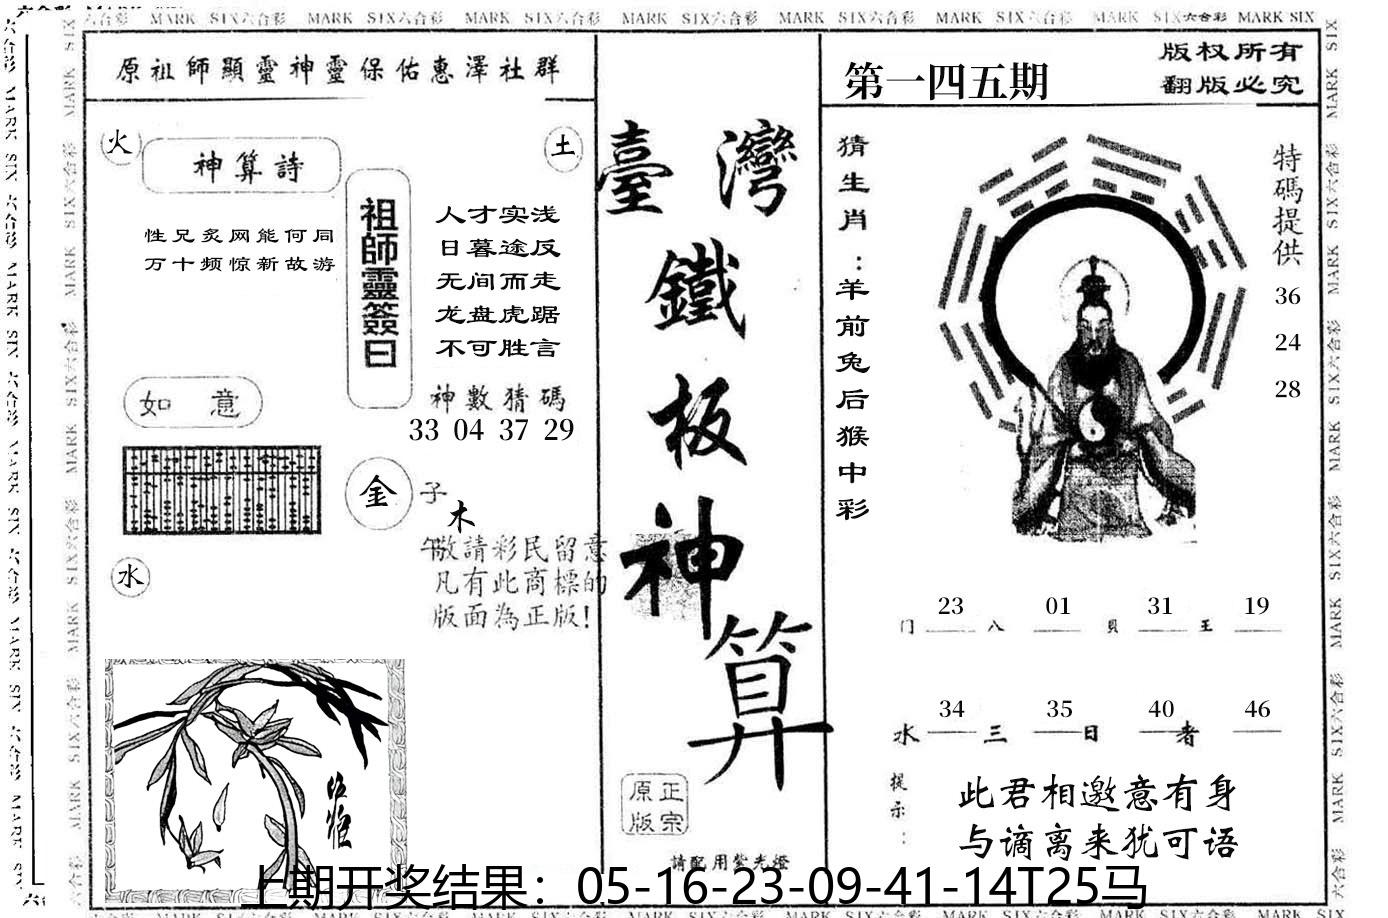 MARK SIX六合彩 MARK SIX六合彩 MARK SIX六合彩 MARK SIX六合彩 MARK SIX六合彩 MARK SIX六合彩 MARK SIX六合彩 MARK SIX
原祖師顯靈神靈保佑惠澤社群
火
神算詩
土
性兄炙网能何同
万十频惊新故游
祖師靈簽曰
人才实浅
日暮途反
无间而走
龙盘虎踞
不可胜言
如意
神數猜碼
33 04 37 29
金
子
木
午
水
敬請彩民留意
凡有此商標的
版面為正版!
臺灣
鐵
板
神
算
正宗
原版
請配用紫光燈
第一四五期
版权所有
翻版必究
猜生肖:羊前兔后猴中彩
特碼提供
36
24
28
23 01 31 19
门 八 貝 王
34 35 40 46
水 三 日 者
提示:
此君相邀意有身
与谪离来犹可语
上期开奖结果：05-16-23-09-41-14T25马